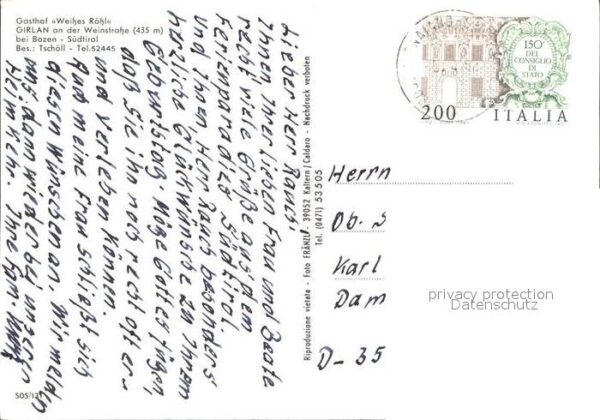 Gasthof »Weißes Rößl«
GIRLAN an der Weinstraße (435 m)
bei Bozen - Südtirol
Bes.: Tschöll - Tel. 52445
Lieber Herr Rauch!
Ihnen, Ihrer lieben Frau und Beate
recht viele Grüße aus dem
Ferienparadies Südtirol.
Und Ihnen Herr Rauch besonders
herzliche Glückwünsche zu Ihrem
Geburtstag. Möge Gottes fügen,
daß Sie ihn noch recht oft er-
und verleben können.
Auch meine Frau schließt sich
diesen Wünschen an. Wir melden
uns dann wieder bei unserer
Heimkehr. Ihre Fam
505/121
Reproduzione vietata - Foto FRÄNZL - 39052 Kaltern/Caldaro - Nachdruck verboten
Tel. (0471) 53505
200
150°
DEL
CONSIGLIO
DI
STATO
ITALIA
Herrn
Ob. S
Karl
Dam
D-35
privacy protection
Datenschutz